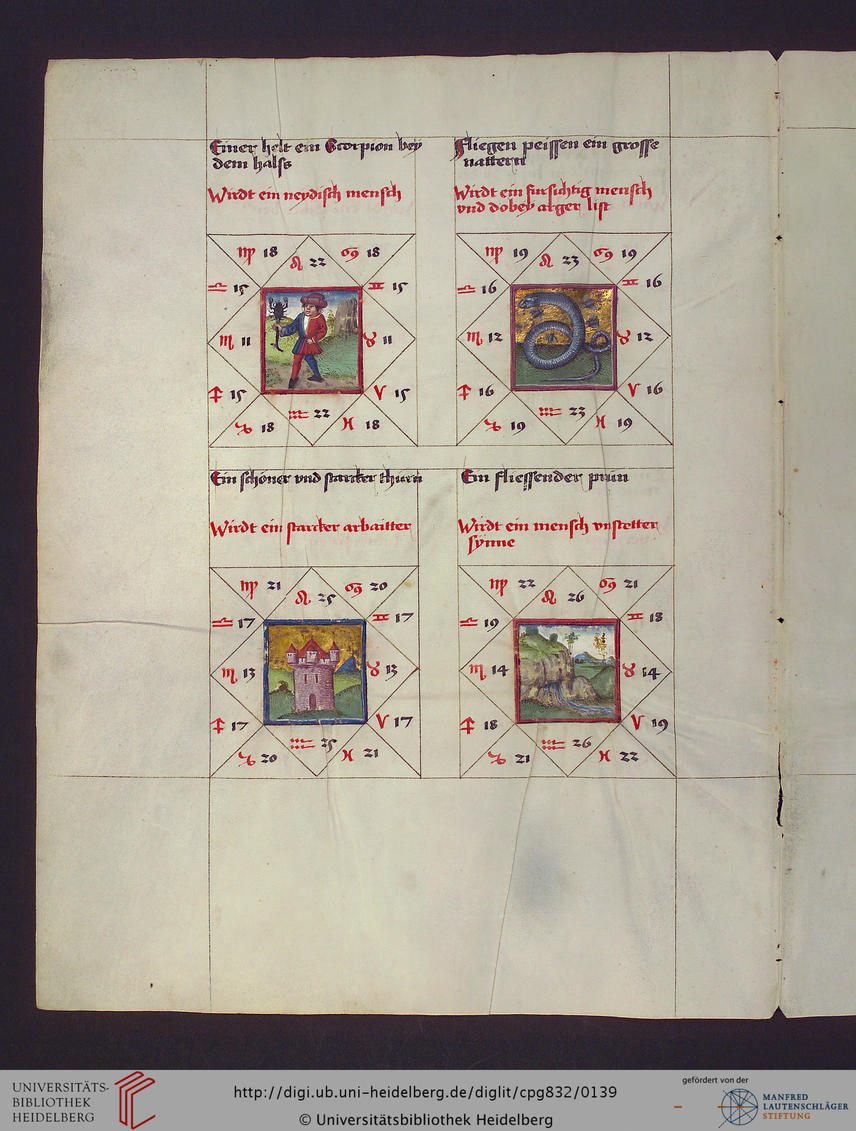 Einer helt ein Scorpion bey
dem halss
Wirdt ein neydisch mensch
♍ 18
♌ 22
♋ 18
♎ 15
♊ 15
♏ 11
♉ 11
♐ 15
♈ 15
♑ 18
♒ 22
♓ 18
Fliegen peissen ein grosse
nattern
Wirdt ein fursichtig mensch
vnd dobey arger list
♍ 19
♌ 23
♋ 19
♎ 16
♊ 16
♏ 12
♉ 12
♐ 16
♈ 16
♑ 19
♒ 23
♓ 19
Ein schöner vnd starcker thurn
Wirdt ein starcker arbaitter
♍ 21
♌ 25
♋ 20
♎ 17
♊ 17
♏ 13
♉ 13
♐ 17
♈ 17
♑ 20
♒ 25
♓ 21
Ein fliessender prun
Wirdt ein mensch vnstetter
synne
♍ 22
♌ 26
♋ 21
♎ 19
♊ 18
♏ 14
♉ 14
♐ 18
♈ 19
♑ 21
♒ 26
♓ 22
UNIVERSITÄTS-
BIBLIOTHEK
HEIDELBERG
http://digi.ub.uni-heidelberg.de/diglit/cpg832/0139
© Universitätsbibliothek Heidelberg
gefördert von der
MANFRED
LAUTENSCHLÄGER
STIFTUNG